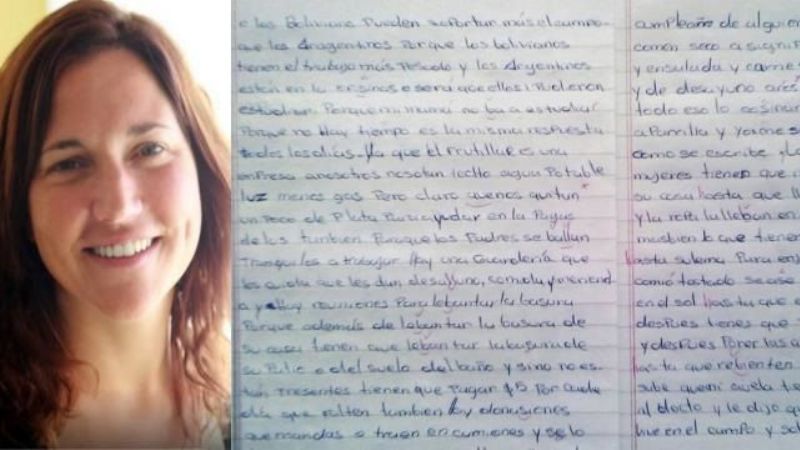 e los Bolivianos Pueden soportar más el campo
que los Aragentinos Porque los bolivianos
tienen el trabajo más Pesado y los Argentinos
están en la
estudiar. Porque mi mamá no ba a estudiar
Porque no Hay tiempo es la misma respuesta
todos los días. Ya que el frutillar es una
enpresa a nosotros nos dan techo agua Potable
luz menos gas Pero claro que nos quitan
un Poco de Plata Para ayudar en la Paga
de los tambien. Para que los Padres se ballan
Tranquilos a trabajar Hay una Guardería que
los cuida que les dan desalluno, comida y meriend
a y Hay reuniones Para lebantar la basura
Porque además de lebantar la basura de
su casa tienen que lebantar la basura de
su Patio o del suelo del baño y si no es
tan Presentes tienen que Pagar $5 Por cada
día que falten tambien Hay donasiones
que mandas o traen en camiones y se lo
cumpleaño de alguien
comen seco a signifi
y ensalada y carne
y de desayuno
todo eso lo cosinar
a Parrilla y
como se escribe
mujeres tienen que
su casa hasta que ll
y la ropa la lleban en
tambien lo que tienen
asta su lama Para en
como tostado se ase
en el sol Hasta que e
despues tienes que
y despues Poner las a
asta que rebienten
sube que mi avela te
al docto y le dijo q
bive en el campo y sol